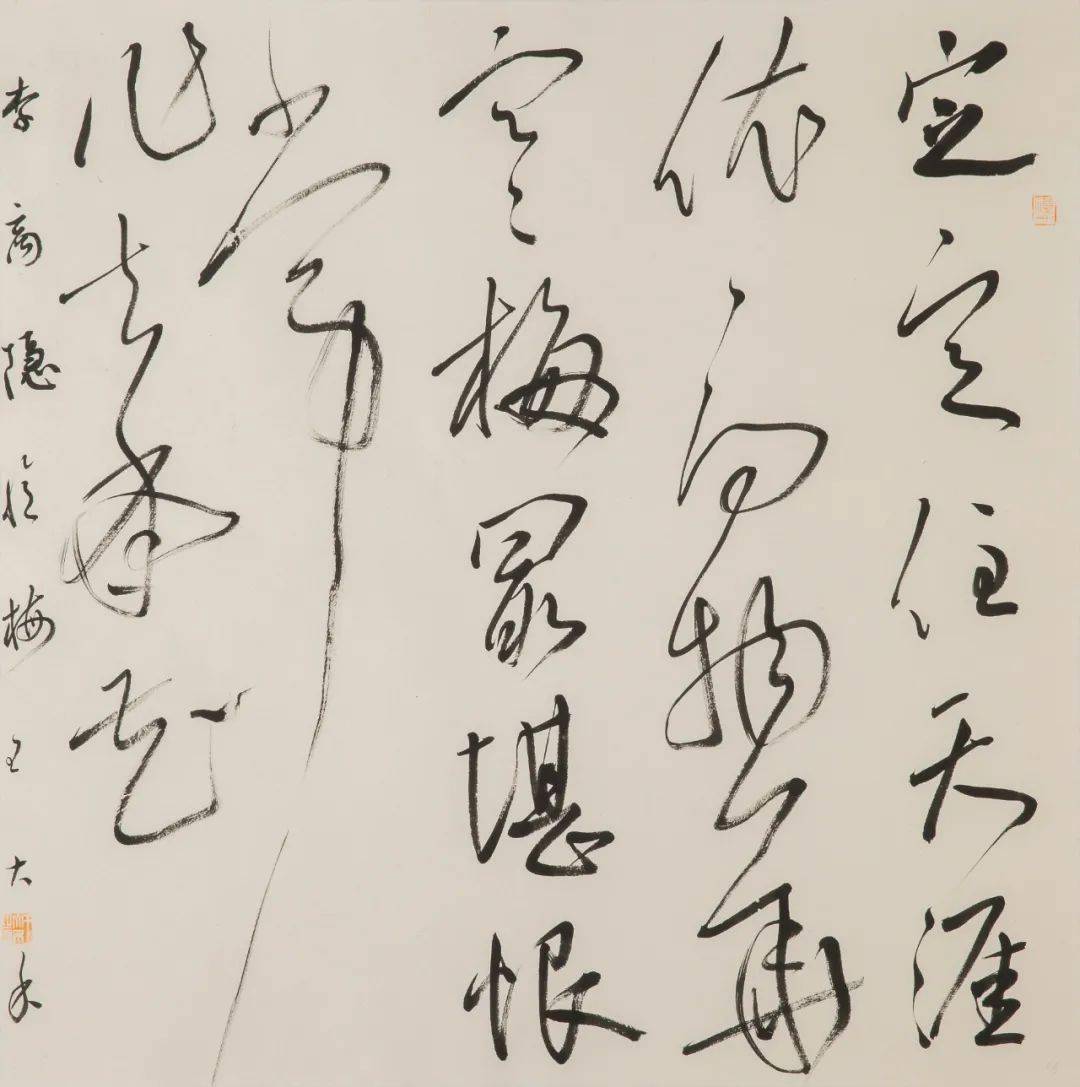 定定住天涯
依依向物華
寒梅最堪恨
常
作去年花
李商隐忆梅 王大